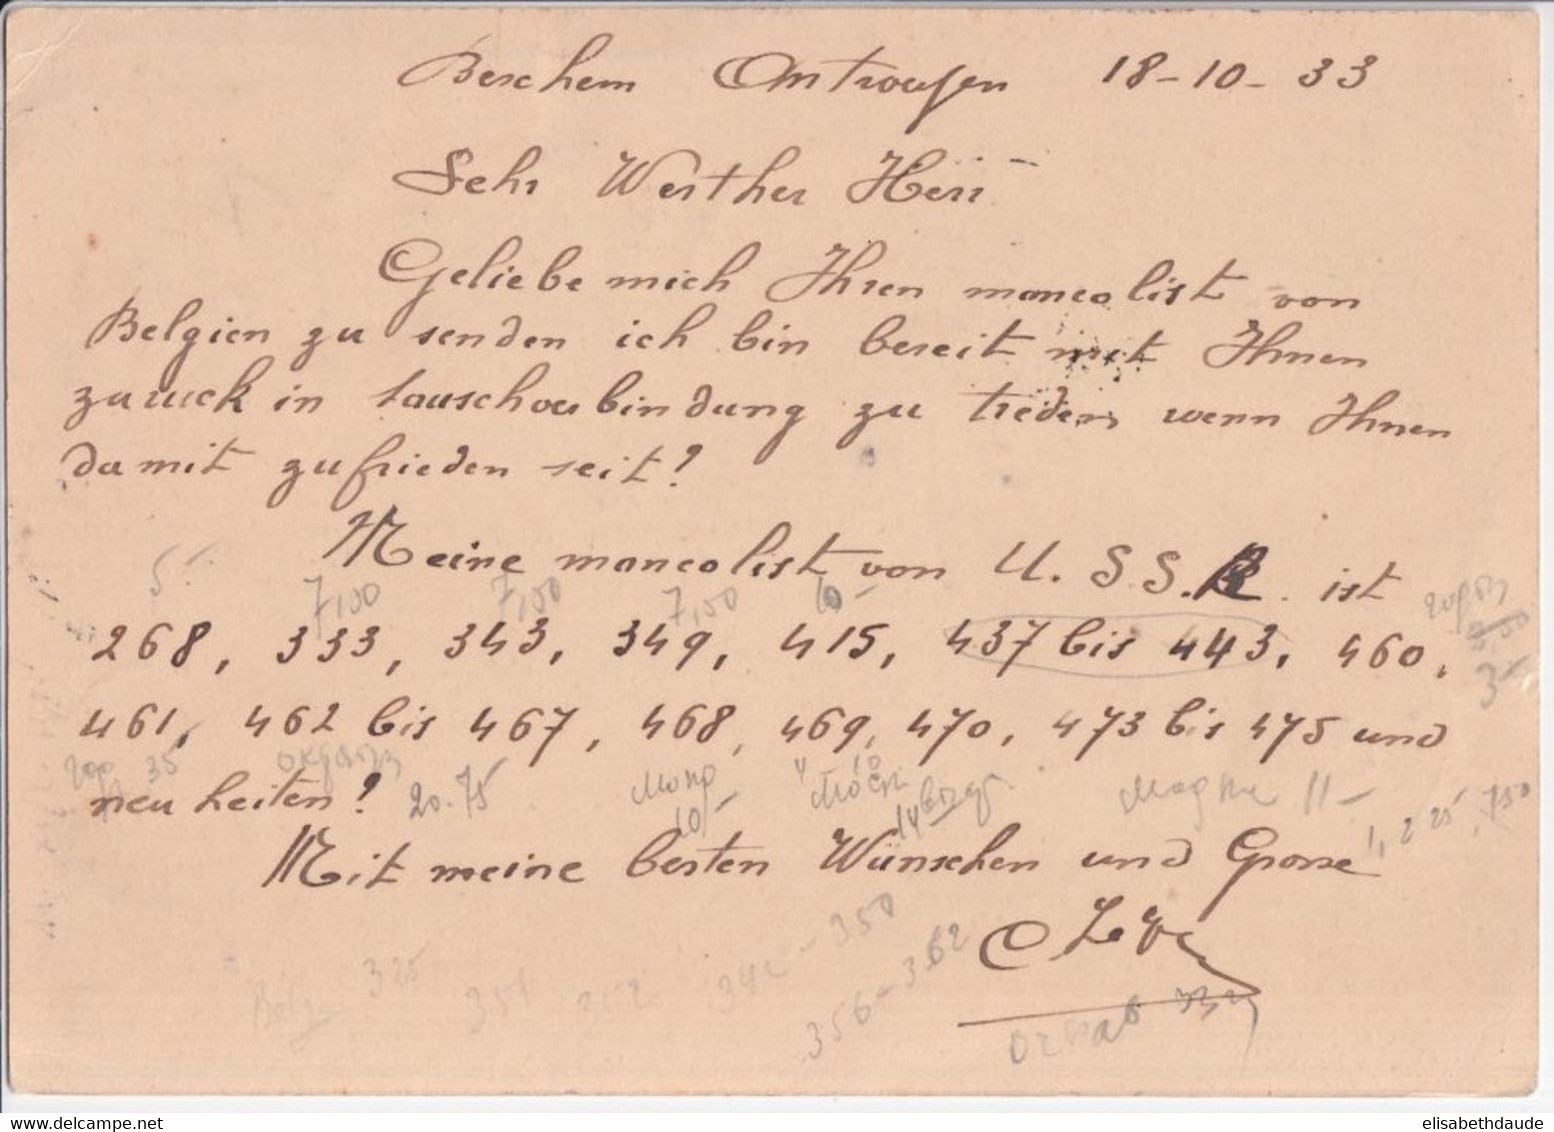 Berchem Antwerpen 18-10-33
Sehr Werther Herr
Geliebe mich Ihren mancolist von
Belgien zu senden ich bin bereit mit Ihnen
zuruck in tauschverbindung zu treden wenn Ihnen
damit zufrieden seit?
Meine mancolist von U.S.S.R. ist
5- 7,00 7,50 7,50 10-
268, 333, 343, 349, 415, 437 bis 443, 460,
3-
461, 462 bis 467, 468, 469, 470, 473 bis 475 und
35 10
neu heiten? 20.75 10/- 14 11-
1, 2 25, 750
Mit meine besten Wünschen und Grosse
350
325 351 352 342 - 356-362
elisabethdaude